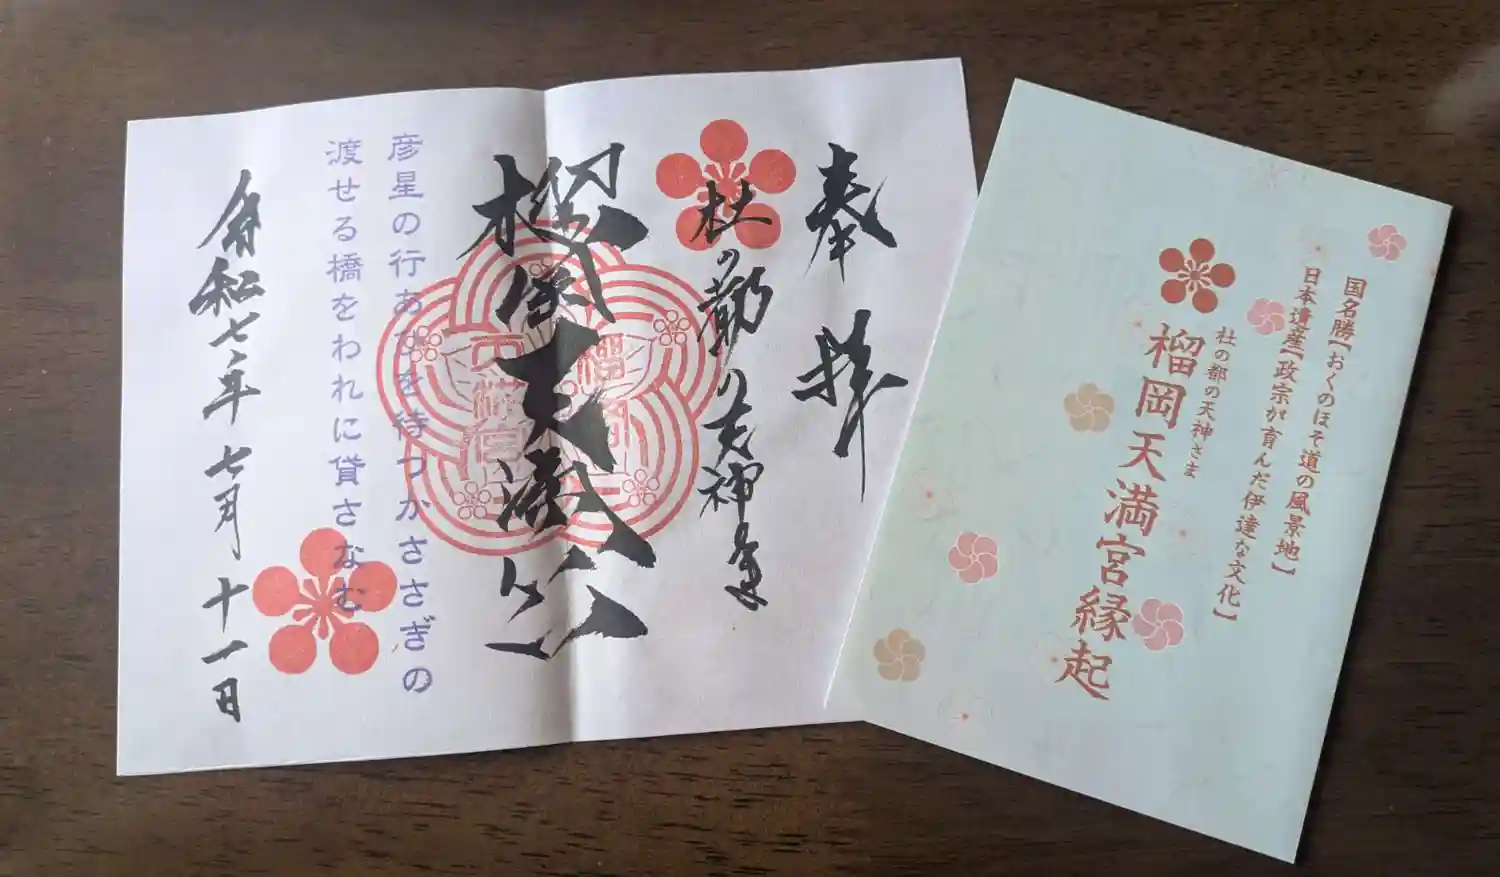 奉拝
杜の都の天神さま
榴岡天満宮
彦星の行あひを待つかささぎの
渡せる橋をわれに貸さなむ
令和七年七月十一日
国名勝【おくのほそ道の風景地】
日本遺産【政宗が育んだ伊達な文化】
杜の都の天神さま
榴岡天満宮縁起